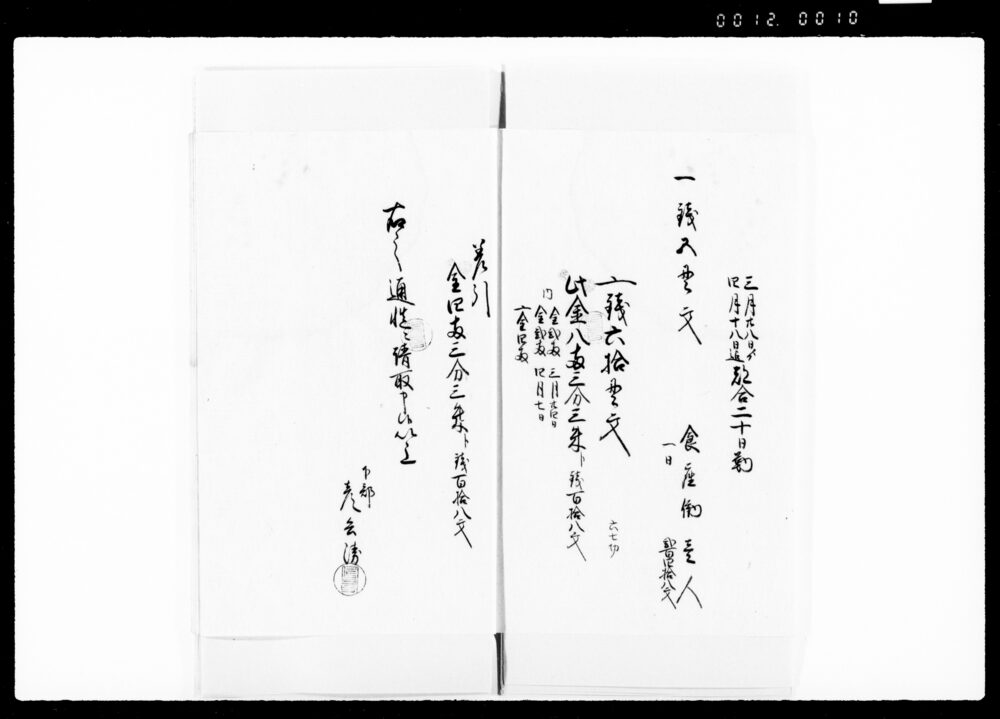 0012. 0010
三月廿八日ゟ
四月十八日迄 都合二十日勤
一 銭五貫文 食座働 壱人
一日
〆銭六拾貫文
六七切
此金八両三分三朱ト 銭百拾八文
内
金弐両 三月
金弐両 四月七日
〆金四両
差引
金四両三分三朱ト 銭百拾八文
右之通慥ニ請取申候以上
下部
彦兵衛